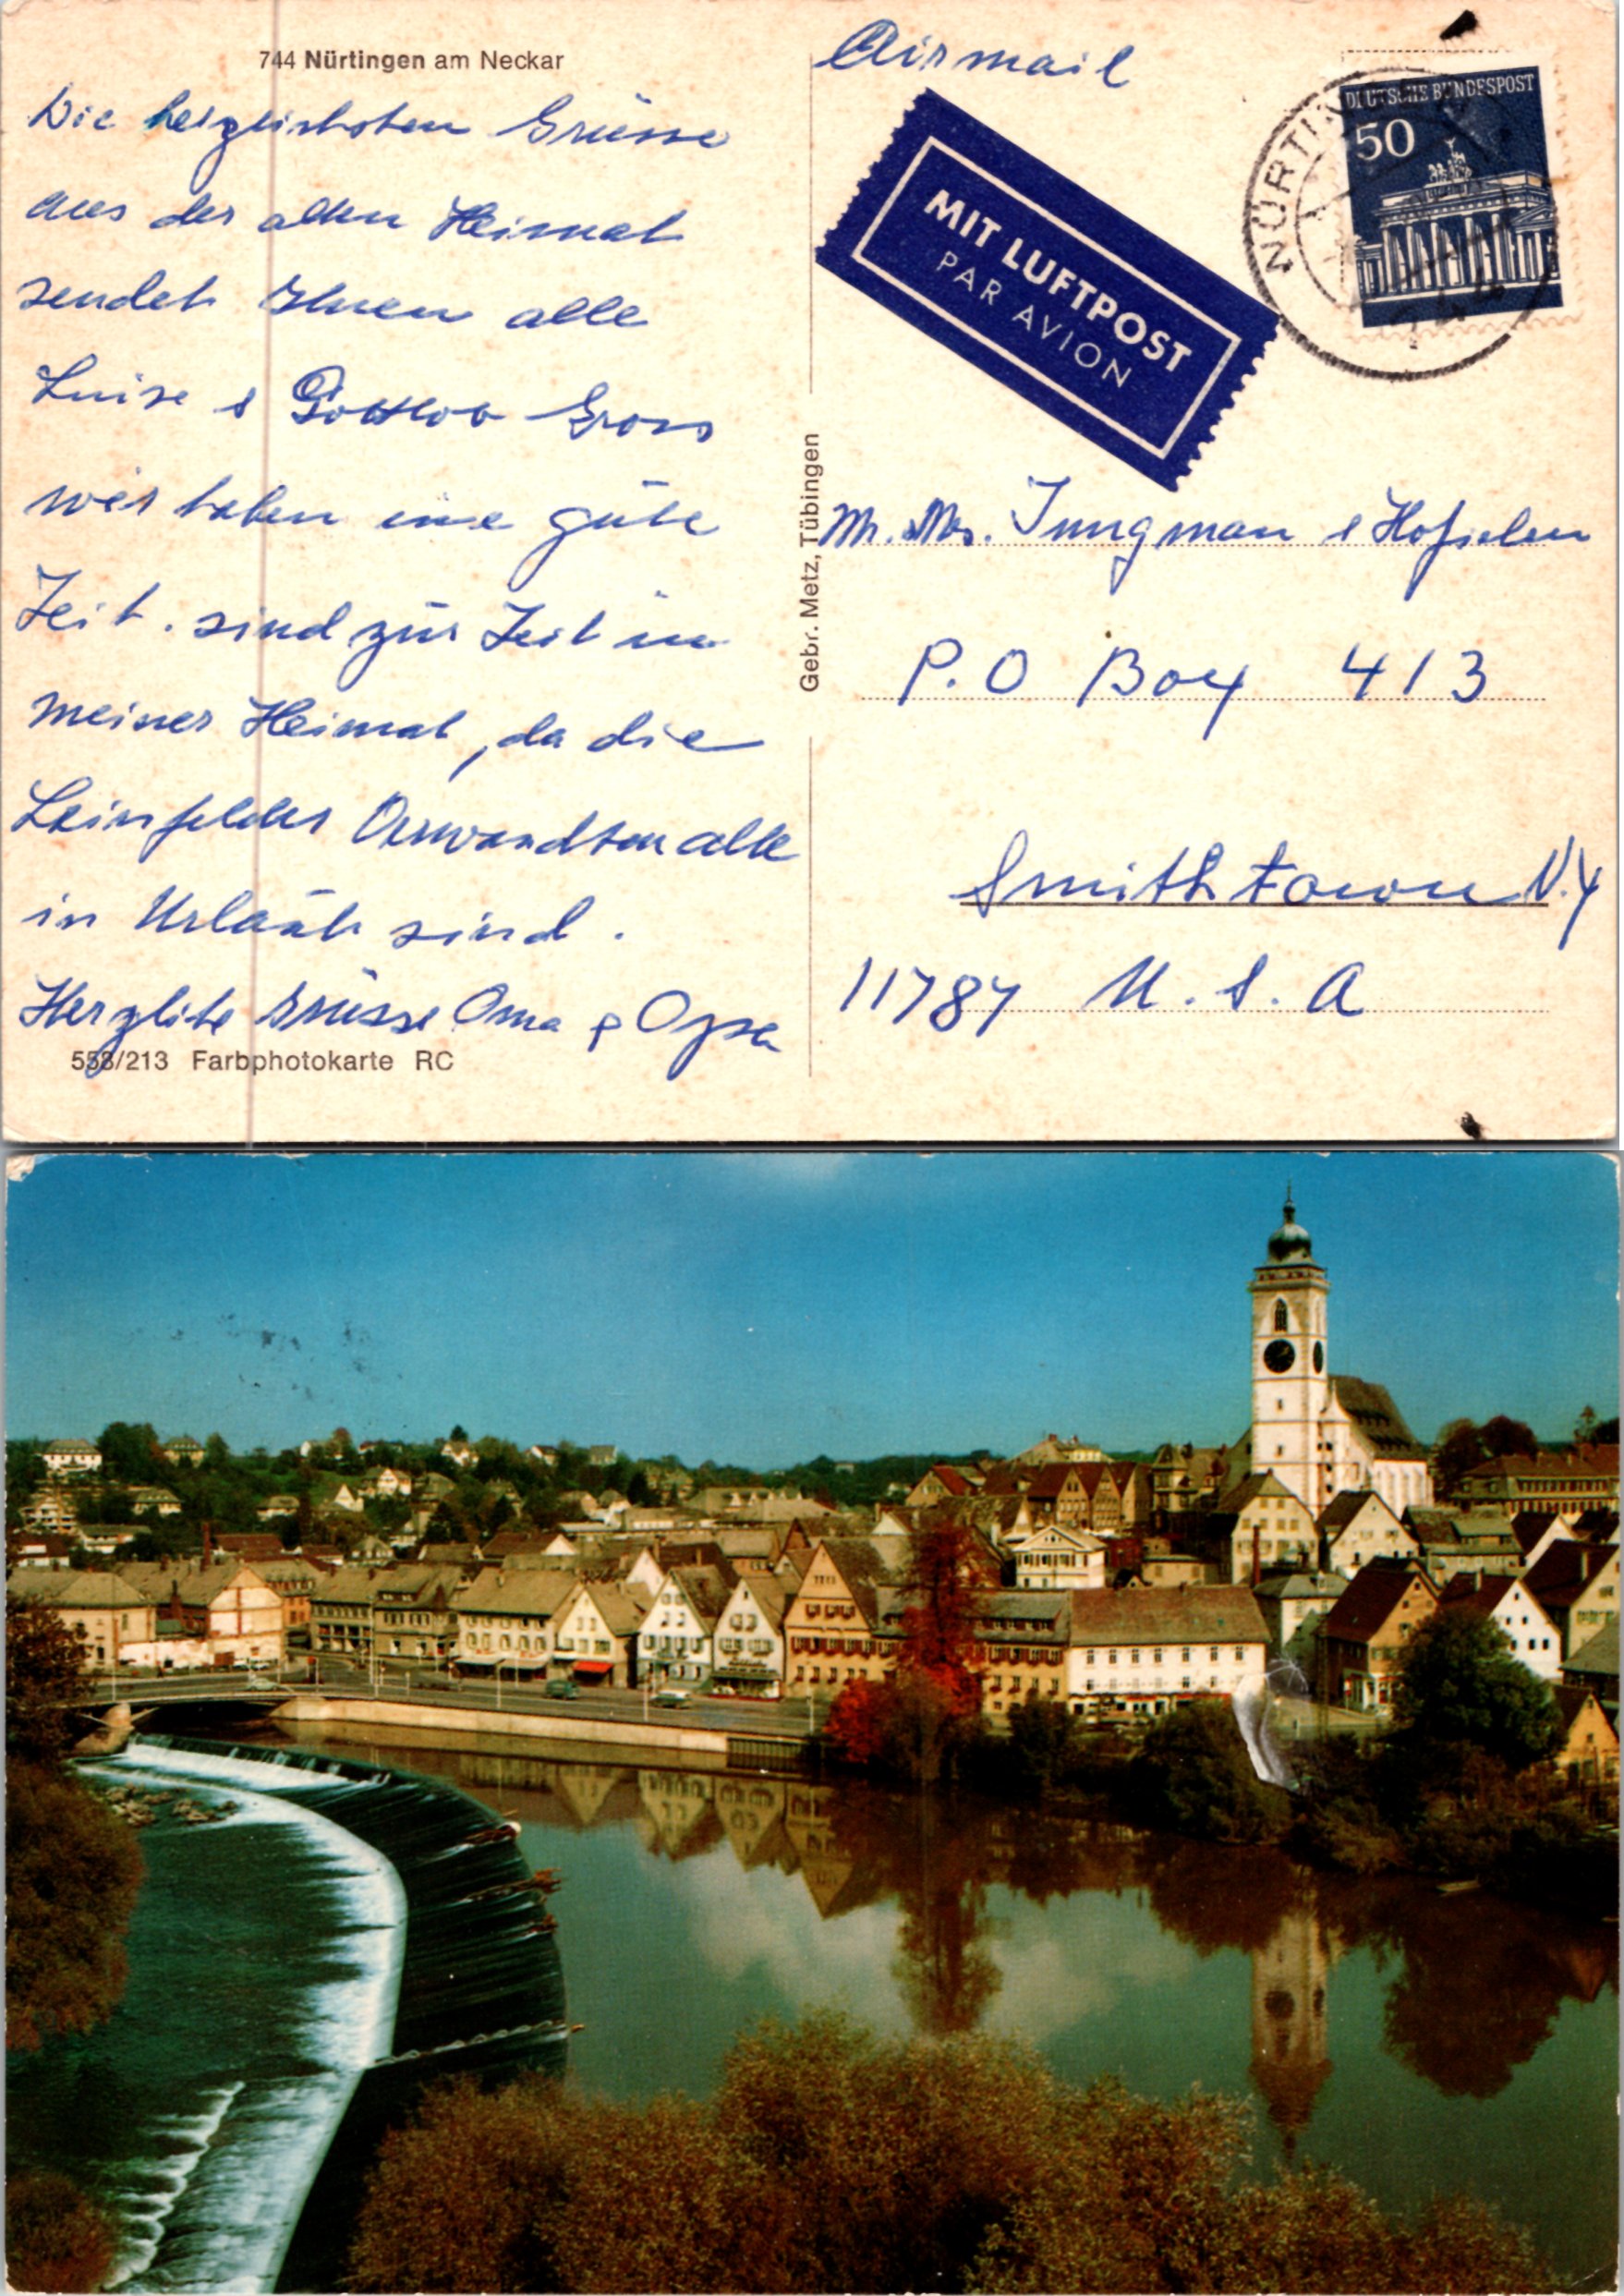 744 Nürtingen am Neckar
Die herzlichsten Grüsse
aus der alten Heimat
sendet Ihnen alle
Luise & Gottlob Gross
wir haben eine gute
Zeit. sind zur Zeit in
meiner Heimat, da die
Leinfelder Verwandten alle
in Urlaub sind.
Herzlihe Grüsse Oma & Opa
558/213 Farbphotokarte RC
Gebr. Metz, Tübingen
Airmail
MIT LUFTPOST
PAR AVION
DEUTSCHE BUNDESPOST
50
NÜRTIN
744
Mr. Mrs. Jungman &
P.O Box 413
Smithtown N.Y
11787 U.S.A